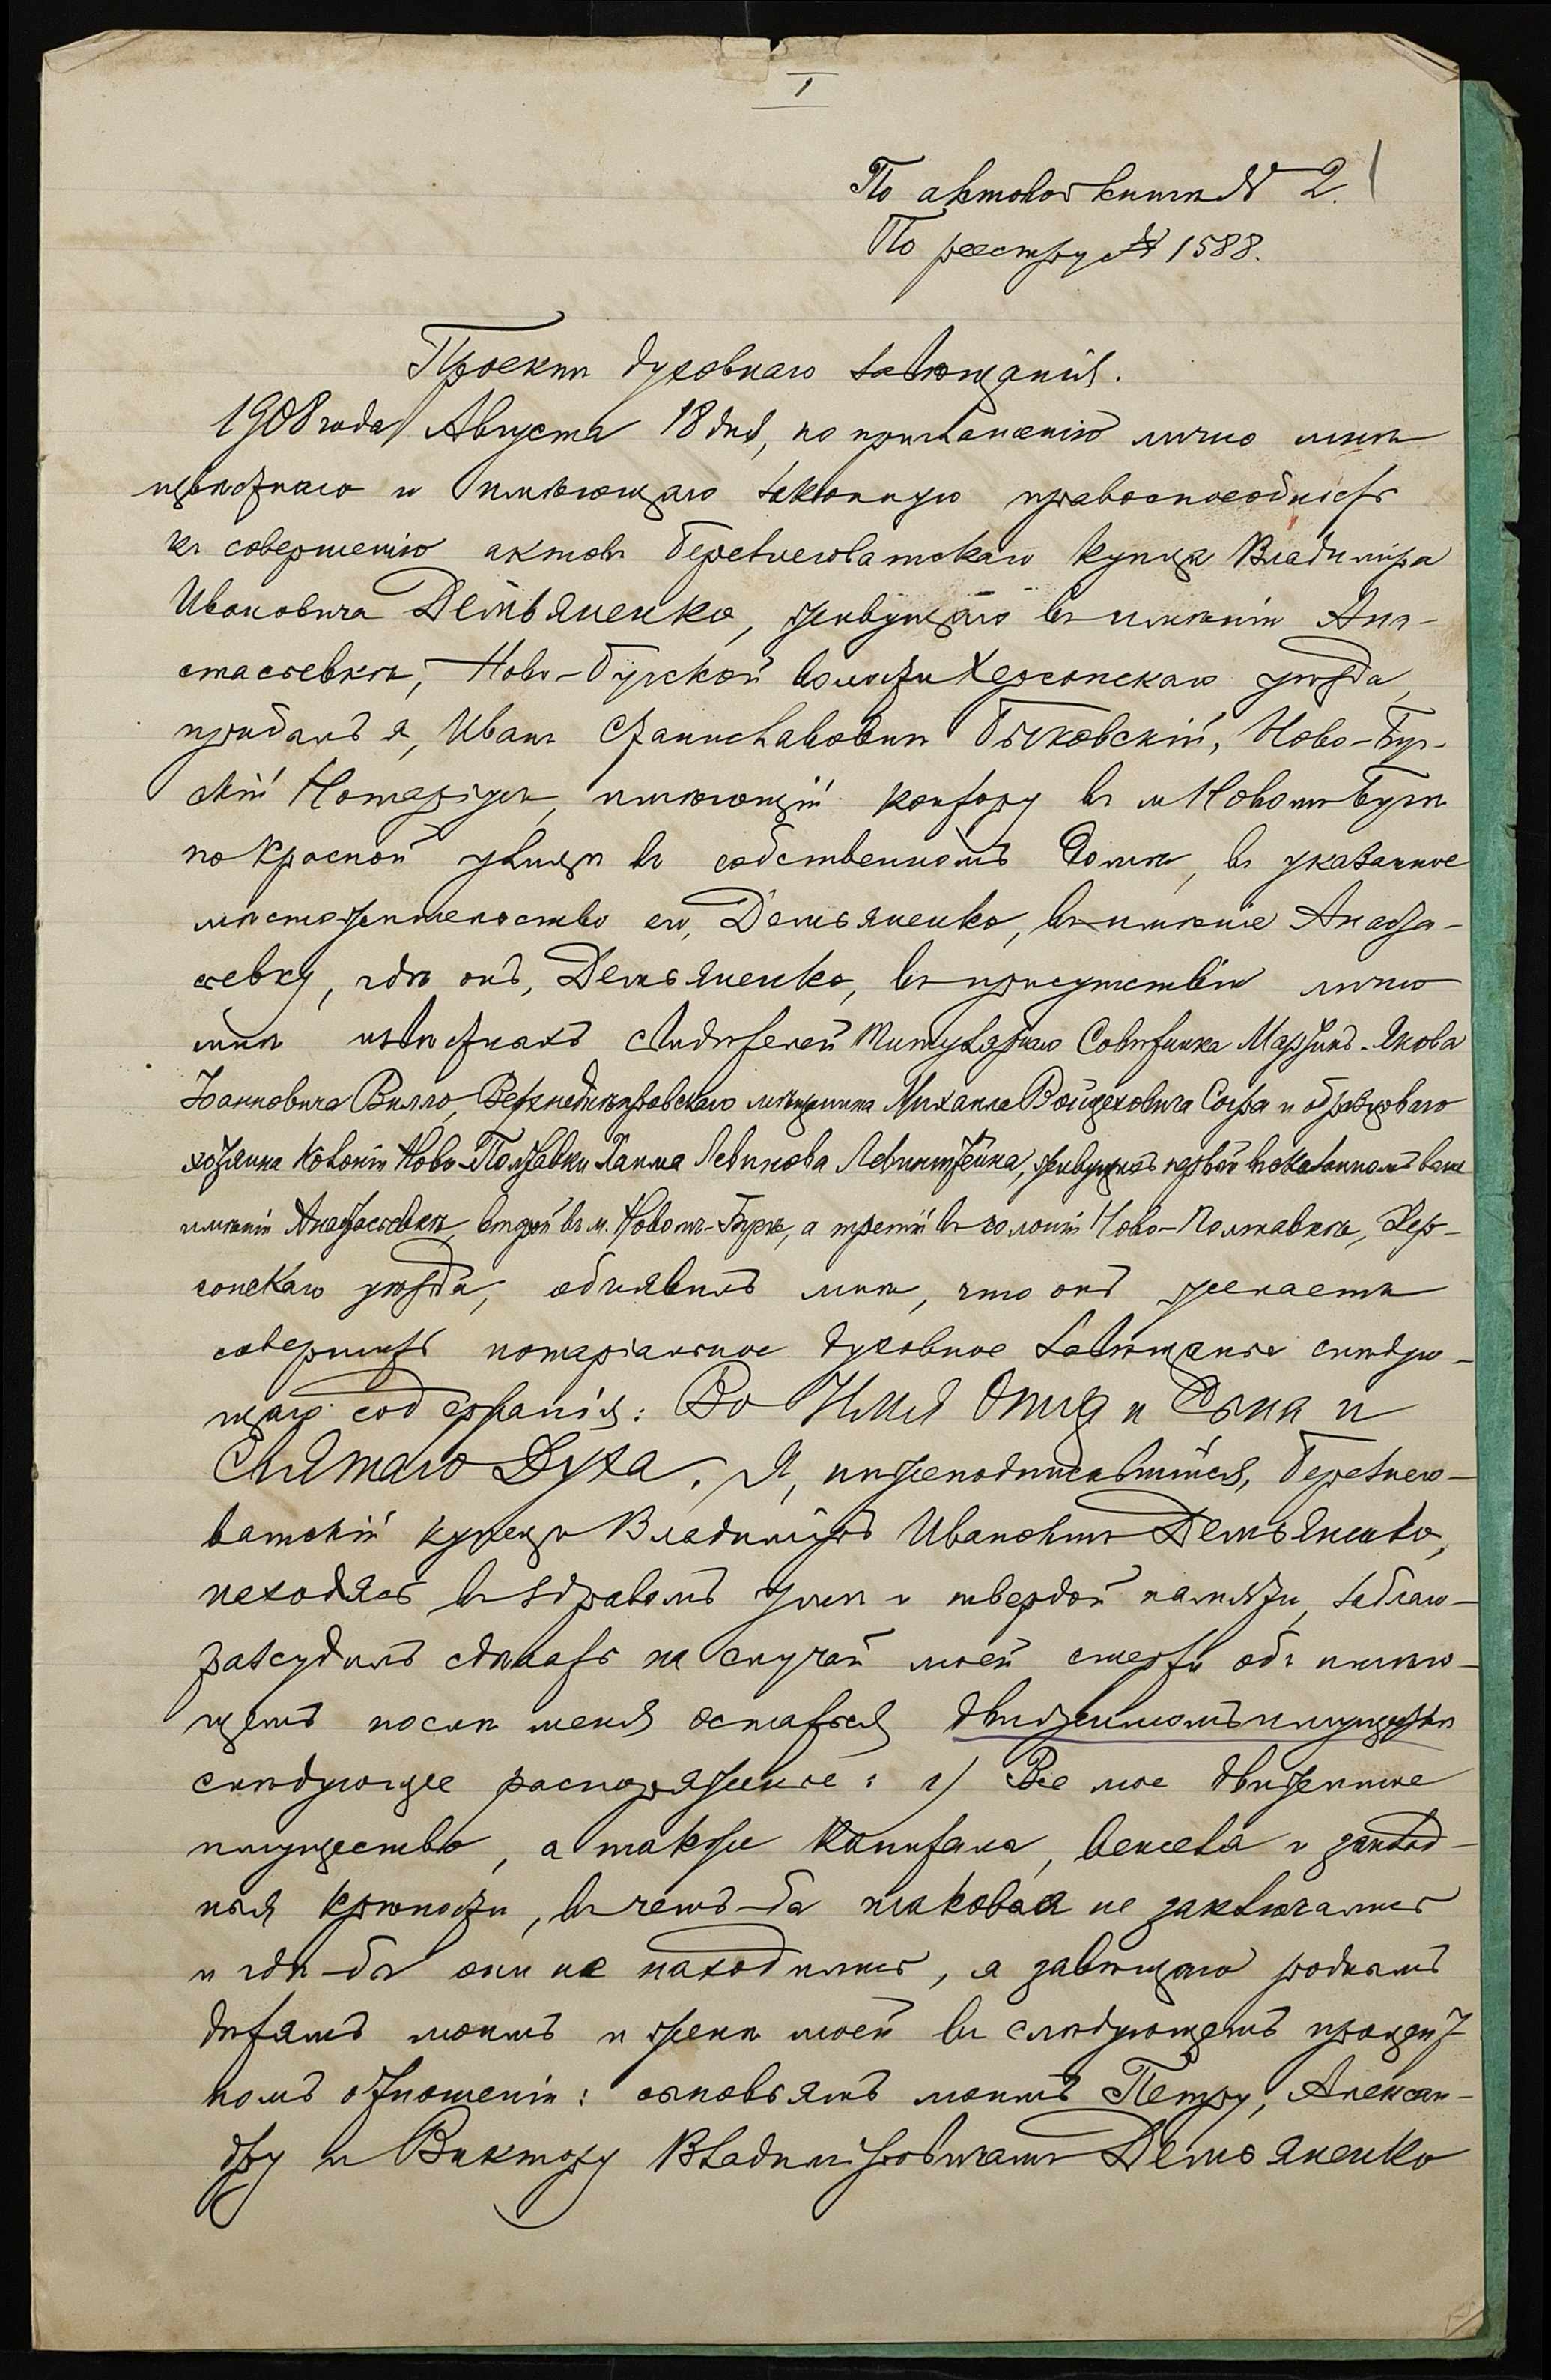 1
По актовой книгѣ № 2.
По реестру № 1588.
Проектъ духовнаго завѣщанія.
1908 года Августа 18 дня, по приглашенію лично мнѣ
извѣстнаго и имѣющаго законную правоспособность
къ совершенію актовъ Березнеговатскаго купца Владиміра
Ивановича Демьяненко, живущаго въ имѣніи Ана-
стасьевкѣ, Ново-Бугской волости Херсонскаго уѣзда,
прибылъ я, Иванъ Станиславовичъ Бычковскій, Ново-Буг-
скій Нотаріусъ, имѣющій контору въ м. Новомъ-Бугѣ
по Красной улицѣ въ собственномъ домѣ, въ указанное
мѣстожительство его, Демьяненко, въ имѣніе Анаста-
сьевку, гдѣ онъ, Демьяненко, въ присутствіи лично
мнѣ извѣстныхъ свидѣтелей Титулярнаго Совѣтника Мартинъ-Якова
Іоанновича Вилло, Верхнеднѣпровскаго мѣщанина Михаила Войцеховича и образцоваго
хозяина колоніи Ново-Полтавки Хаима Левикова Левинштейна, живущихъ первый въ показанномъ выше
имѣніи Анастасьевкѣ, второй въ м. Новомъ-Бугѣ, а третій въ колоніи Ново-Полтавкѣ, Хер-
сонскаго уѣзда, объявилъ мнѣ, что онъ желаетъ
совершить нотаріальное духовное завѣщаніе слѣдую-
щаго содержанія: Во Имя Отца и Сына и
Святаго Духа. Я, нижеподписавшійся, Березнего-
ватскій купецъ Владиміръ Ивановичъ Демьяненко,
находясь въ здравомъ умѣ и твердой памяти, заблаго-
разсудилъ сдѣлать на случай моей смерти объ имѣю-
щемъ послѣ меня остаться движимомъ имуществѣ
слѣдующее распоряженіе: 1) Все мое движимое
имущество, а также капитала, векселя и заклад-
ныя крѣпости, въ чемъ-бы таковыя не заключались
и гдѣ-бы они не находились, я завѣщаю роднымъ
дѣтямъ моимъ и женѣ моей въ слѣдующемъ процент-
номъ отношеніи: сыновьямъ моимъ Петру, Алексан-
дру и Виктору Владиміровичамъ Демьяненко